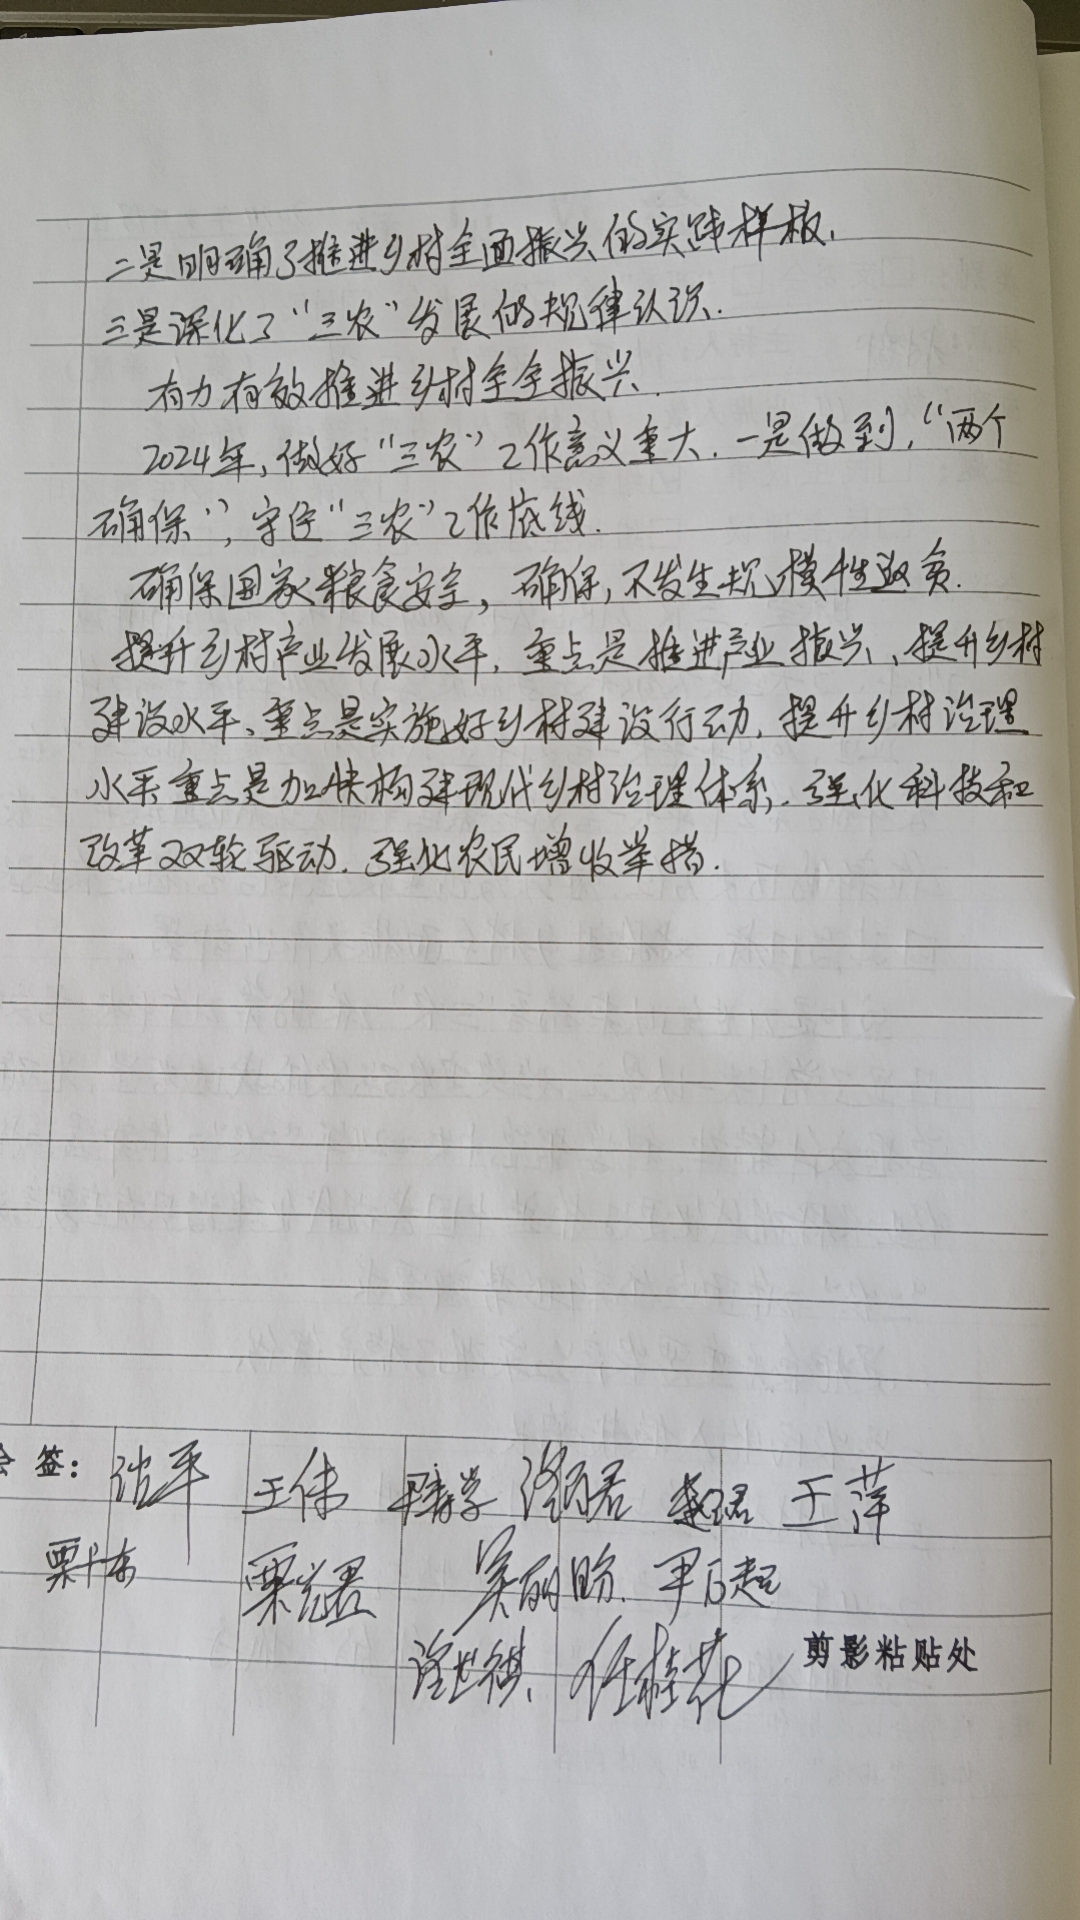 二是明确了推进乡村全面振兴的实践样板.
三是深化了“三农”发展的规律认识.
有力有效推进乡村全全振兴.
2024年,做好“三农”工作意义重大.一是做到,“两个
确保”,守住“三农”工作底线.
确保国家粮食安全,确保,不发生规模性返贫.
提升乡村产业发展水平,重点是推进产业振兴、提升乡村
建设水平、重点是实施好乡村建设行动,提升乡村治理
水平重点是加快构建现代乡村治理体系.强化科技和
改革双轮驱动.强化农民增收举措.
会签: 沈平 王伟 王萍
吴丽盼. 尹日超
任桂花 剪影粘贴处